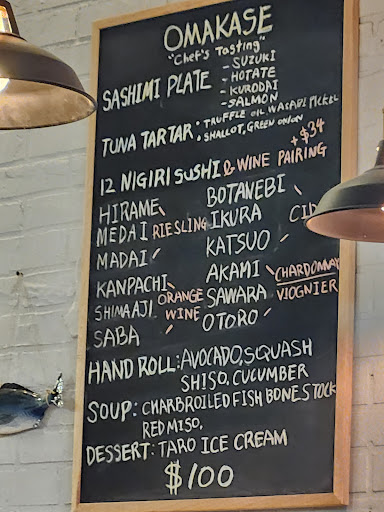 OMAKASE
"Chef's Tasting"
SASHIMI PLATE
- SUZUKI
- HOTATE
- KURODAI
- SALMON
TUNA TARTAR: • TRUFFLE OIL WASABI PICKEL
• SHALLOT, GREEN ONION
12 NIGIRI SUSHI & WINE PAIRING + $34
HIRAME
MEDAI RIESLING
MADAI
KANPACHI
SHIMAAJI ORANGE WINE
SABA
BOTANEBI
IKURA
KATSUO
AKAMI CHARDONNAY
SAWARA VIOGNIER
OTORO
HAND ROLL: AVOCADO, SQUASH
SHISO, CUCUMBER
SOUP: CHARBROILED FISH BONE STOCK
RED MISO,
DESSERT: TARO ICE CREAM
$100